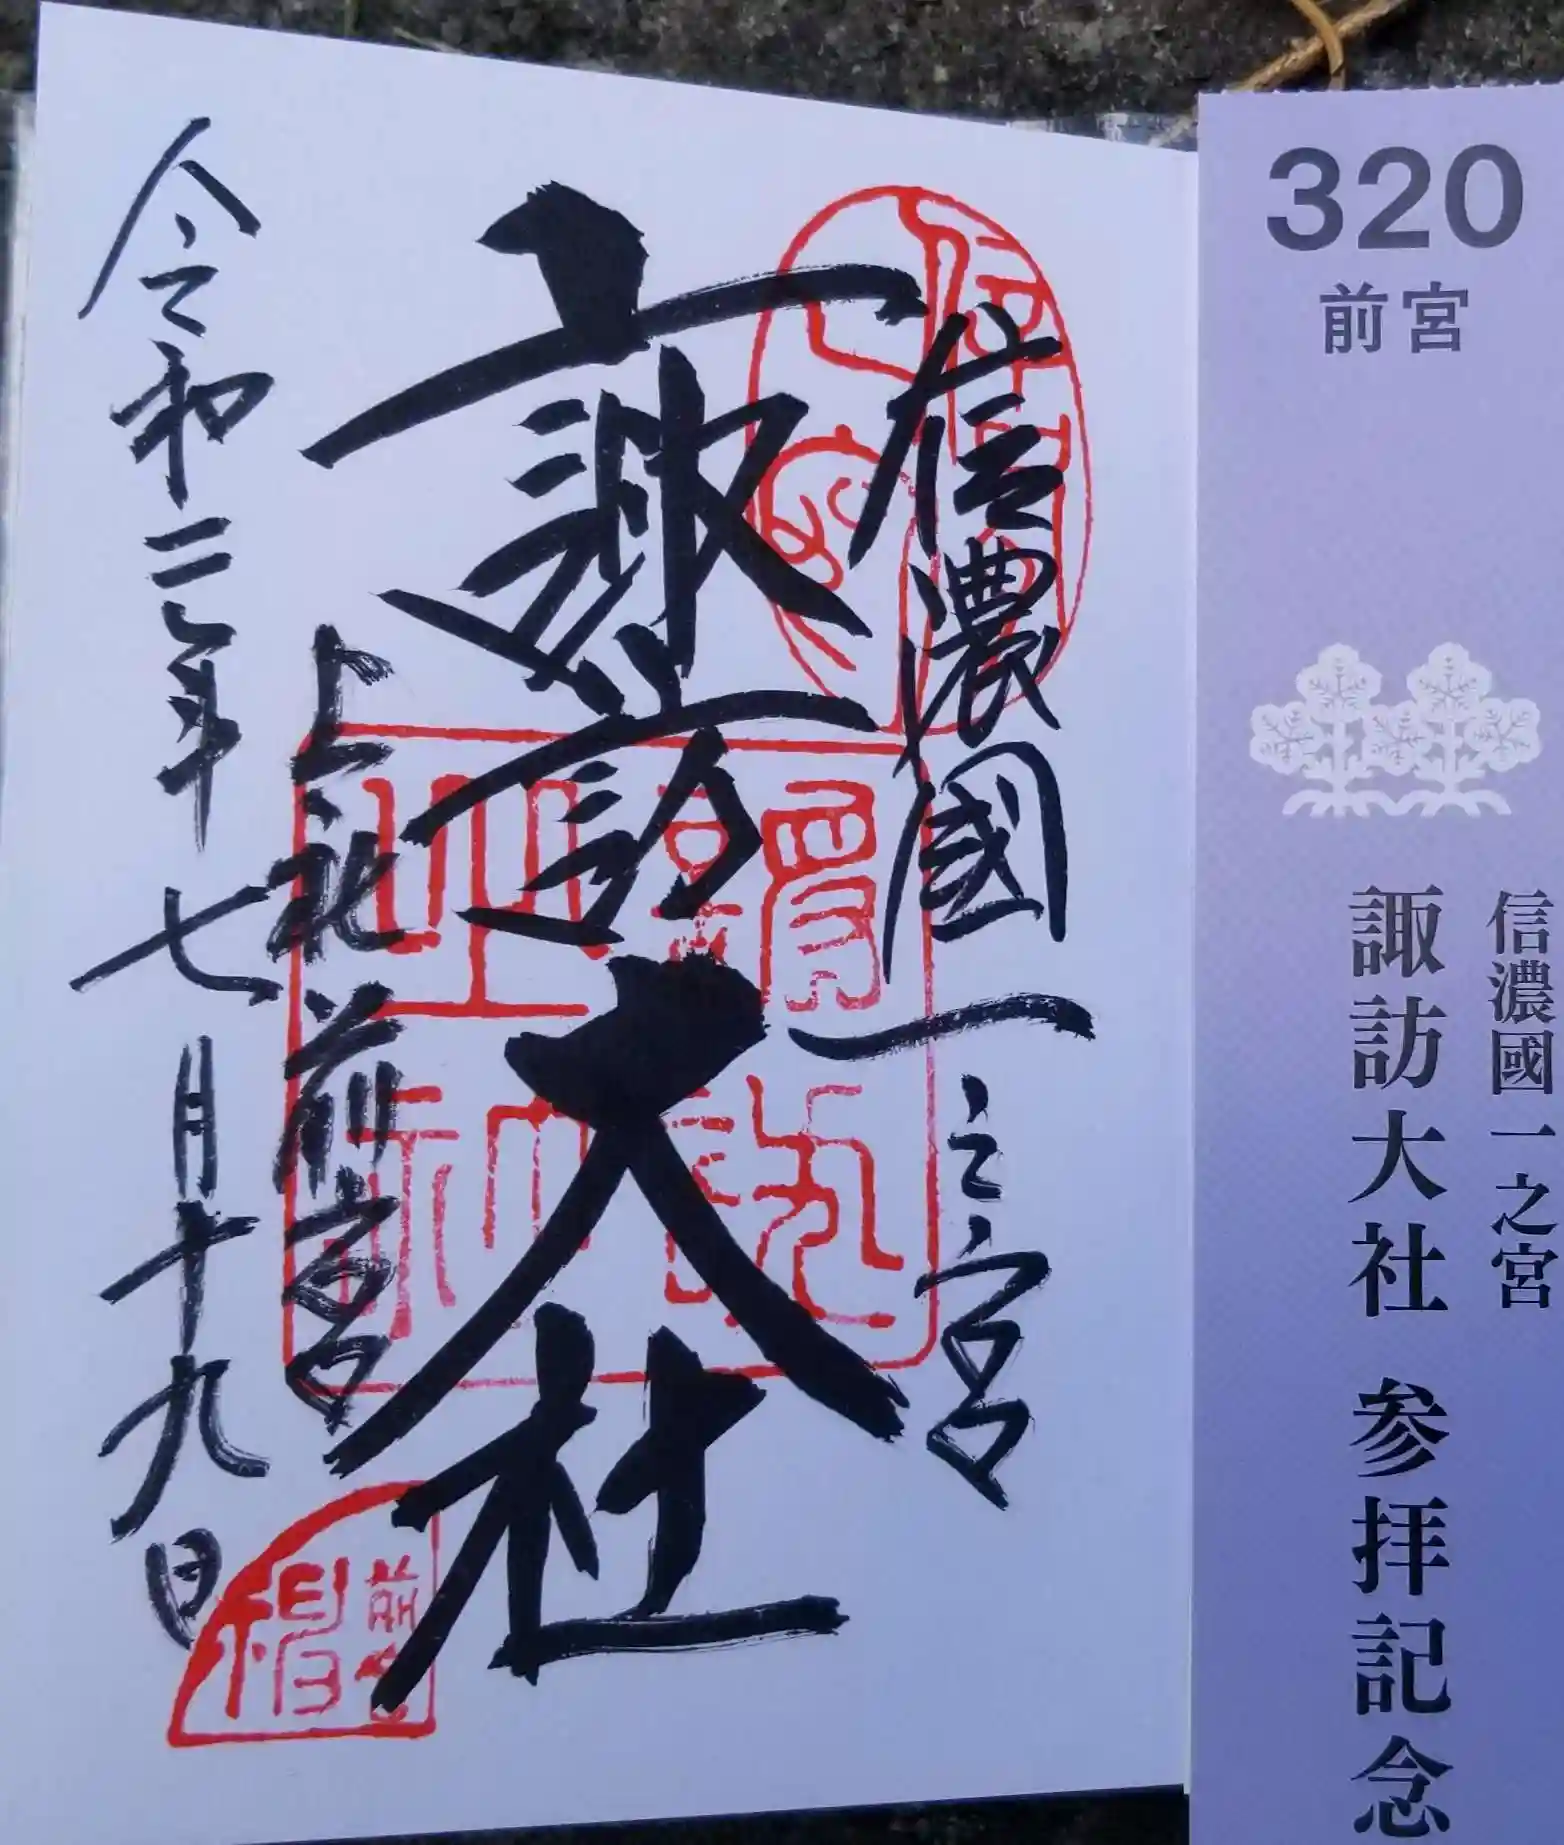 320
前宮
信濃國一之宮
諏訪大社 参拝記念
信濃國一之宮
諏訪大社
上社前宮
令和二年七月十九日